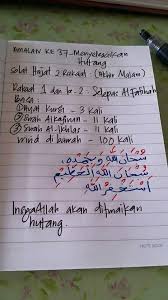 AMALAN KE 37 - Menyelesaikan
Hutang
Solat Hajat 2 Rakaat (Akhir Malam)
Rakaat 1 dan ke-2 - Selepas Al-Fatihah
Baca :
① Ayat Kursi - 3 Kali
② Surah Al-Kafirun - 11 Kali
③ Surah Al-Ikhlas - 11 Kali
wirid di bawah - 100 Kali
سُبْحَانَ اللهِ وَبِحَمْدِهِ،
سُبْحَانَ اللهِ الْعَظِيْمِ
أَسْتَغْفِرُ اللهَ
akan
hutang.